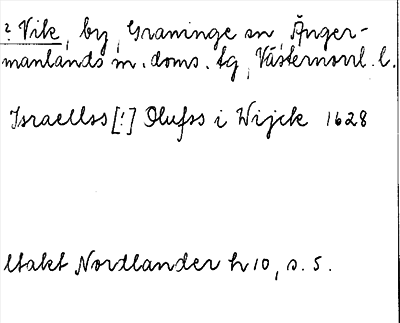 ? Vik, by, Graninge sn Ånger-
manlands m. doms. tg, Västernorrl. l.
Israellss [!] Olufss i Wijck 1628
Utakt Nordlander h 10, s. 5.